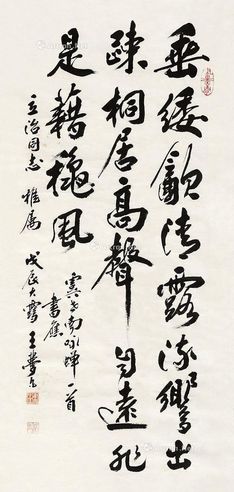 垂緌飲清露流響出
疎桐居高聲自遠非
是藉秋風
虞世南咏蟬一首
立治同志雅屬
書應
戊辰大雪王